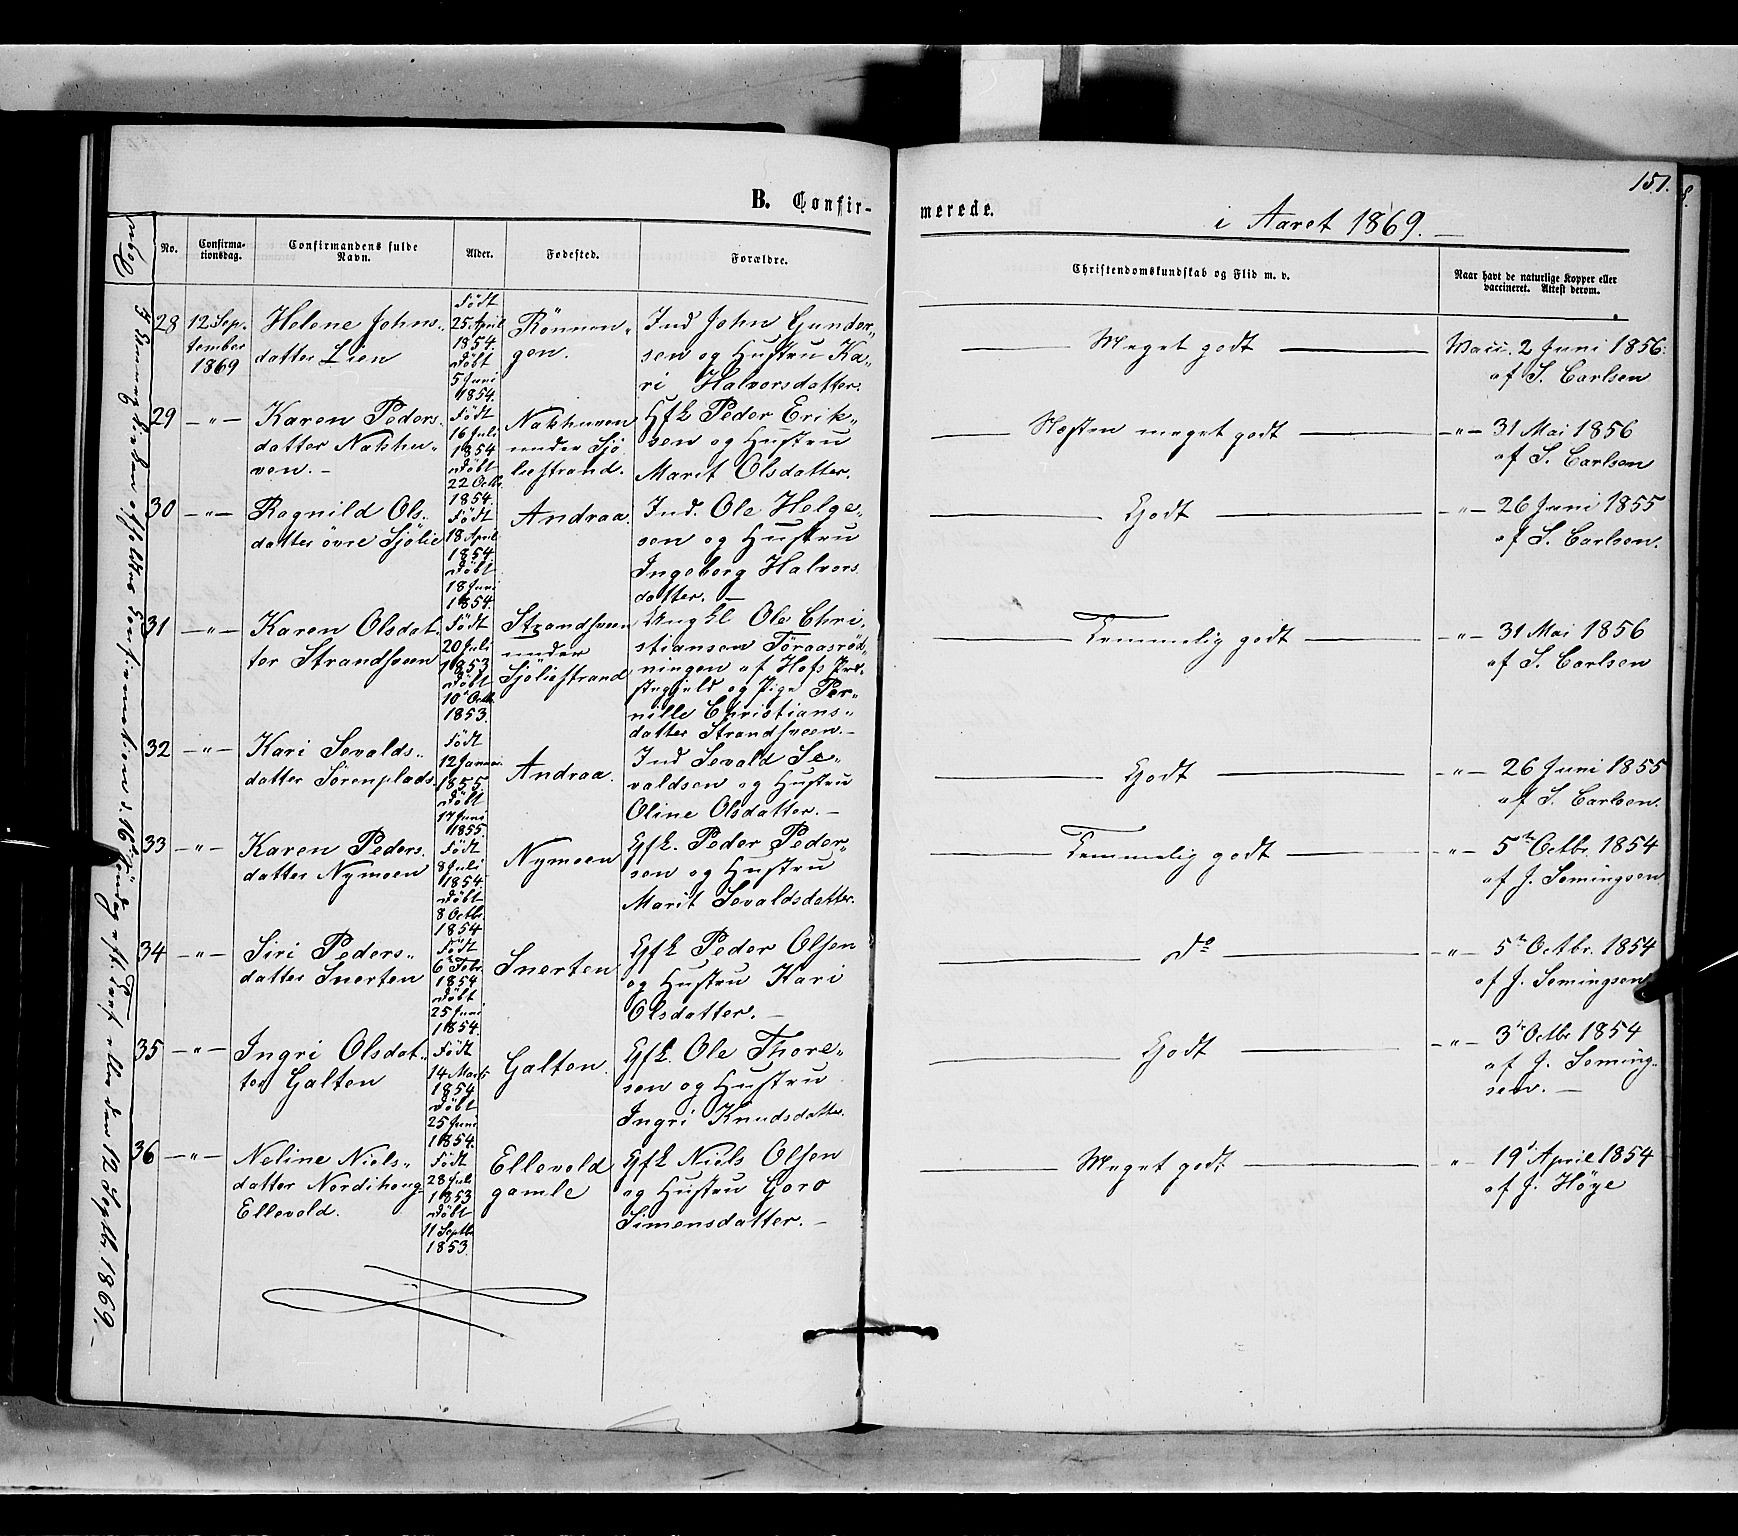 151.
B. Confir-
merede.
i Aaret 1869.
No.
Confirma-
tionsdag.
Confirmandens fulde
Navn.
Alder.
Fødested.
Forældre.
Christendomskundskab og Flid m. v.
Naar havt de naturlige Kopper eller
vaccineret. Attest derom.
28
12 Sep-
tember
1869
Helene Johns-
datter Lien
Født
25 April
1854.
Døbt
5 Juni
1854.
Rönnen-
gen.
Ind John Gunder-
sen og Hustru Ka-
ri Halvorsdatter.
Meget godt
Vacc. 2 Juni 1856.
af S. Carlsen
29
—„—
Karen Peders-
datter Nakhu-
ven.
Født
16 Juli
1854
Døbt
22 Octb.
1854.
Nakhuven
under Sjö
liestrand.
Hfk Peder Erik-
sen og Hustru
Marit Olsdatter.
Næsten meget godt
—„— 31 Mai 1856
af S. Carlsen
30
—„—
Ragnild Ols-
datter övre Sjölie
Født
18 April
1854.
Døbt
18 Juni
1854.
Andraa.
Ind. Ole Helge-
sen og Hustru
Ingeborg Halvors
datter.
Godt
—„— 26 Juni 1855
af S. Carlsen.
31
—„—
Karen Olsdat-
ter Strandsveen
Født
20 Juli
1853
Døbt
10 Octb.
1853.
Strandsveen
under
Sjöliestrand
Ungkl Ole Chri-
stiansen Töraasröd-
ningen af Hofs Præ-
stegjeld og Pige Per-
nille Christians-
datter Strandsveen.
Temmelig godt
—„— 31 Mai 1856
af S. Carlsen
32
—„—
Kari Sevalds-
datter Sörenplads
Født
12 Januar
1855.
Døbt
17 Juni
1855.
Andraa.
Ind Sevald Se-
valdsen og Hustru
Oline Olsdatter.
Godt
—„— 26 Juni 1855
af S. Carlsen.
33
—„—
Karen Peders-
datter Nymoen
Født
8 Juli
1854.
Døbt
8 Octb.
1854
Nymoen
Gfk. Peder Peder-
sen og Hustru
Marit Sevaldsdatter.
Temmelig godt
„— 5te Octbr. 1854
af J. Semingsen
34
—„—
Siri Peders-
datter Snerten
Født
6 Febr.
1854
Døbt
25 Juni
1854.
Snerten
Gfk Peder Olsen
og Hustru Kari
Olsdatter.
Do
—„— 5te Octbr. 1854
af J. Semingsen
35
—„—
Ingri Olsdat-
ter Galten
Født
14 Marts
1854
Døbt
25 Juni
1854.
Galten.
Gfk. Ole Thore-
sen og Hustru
Ingri Knudsdatter.
Godt
—„— 3de Octbr 1854
af J. Seming-
sen.
36
—„—
Neline Niels-
datter Nordihoug
Ellevold.
Født
28 Juli
1853
Døbt
11 Septbr
1853.
Ellevold
gamle
Gfk Niels Olsen
og Hustru Goro
Simensdatter.
Meget godt
„— 19 April 1854
af J. Höye